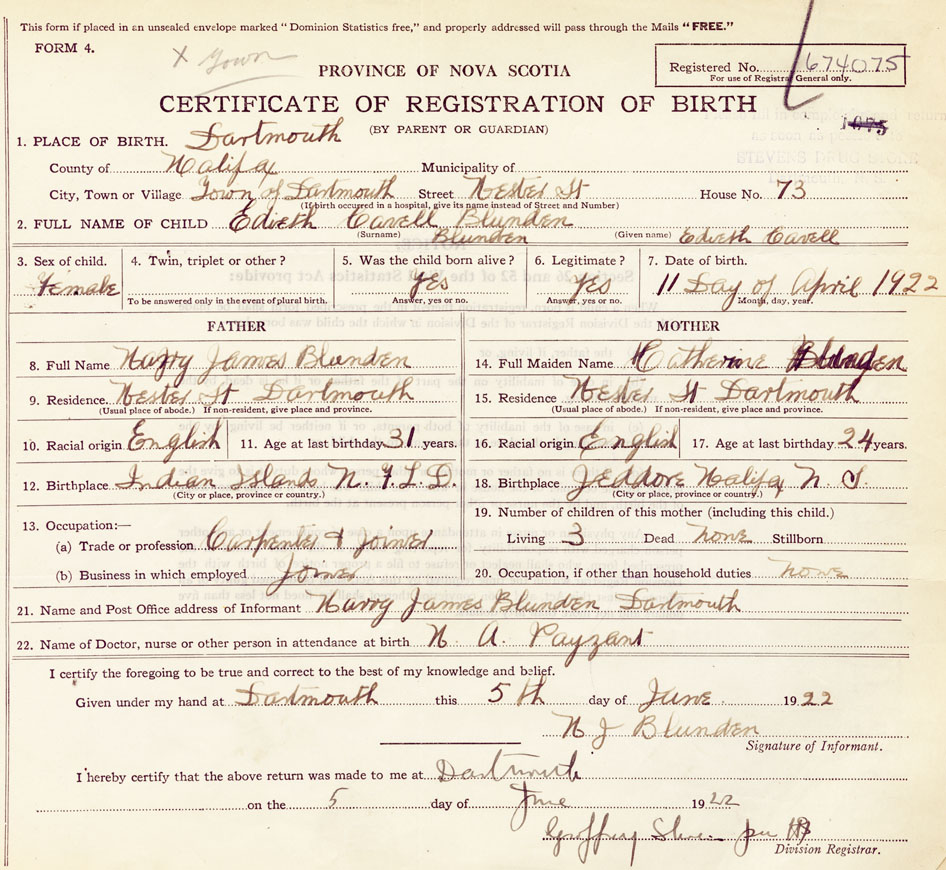 This form if placed in an unsealed envelope marked "Dominion Statistics free," and properly addressed will pass through the Mails "FREE."
FORM 4.
X Town
Registered No. 674075
For use of Registrar General only.
PROVINCE OF NOVA SCOTIA
CERTIFICATE OF REGISTRATION OF BIRTH
(BY PARENT OR GUARDIAN)
1075
STEVENS DRUG STORE
1. PLACE OF BIRTH. Dartmouth
County of Halifax Municipality of
City, Town or Village Town of Dartmouth Street Hester St House No. 73
(If birth occured in a hospital, give its name instead of Street and Number)
2. FULL NAME OF CHILD Edieth Cavell Blunden
(Surname) Blunden (Given name) Edieth Cavell
3. Sex of child. 4. Twin, triplet or other ? 5. Was the child born alive ? 6. Legitimate ? 7. Date of birth.
Female Yes Yes 11 Day of April 1922
To be answered only in the event of plural birth. Answer, yes or no. Answer, yes or no. Month, day, year.
FATHER MOTHER
8. Full Name Harry James Blunden 14. Full Maiden Name Catherine
9. Residence. Hester St Dartmouth 15. Residence Hester St Dartmouth
(Usual place of abode.) If non-resident, give place and province. (Usual place of abode.) If non-resident, give place and province.
10. Racial origin English 11. Age at last birthday 31 years. 16. Racial origin English 17. Age at last birthday 24 years.
12. Birthplace Indian Islands N. F. L. D. 18. Birthplace Jeddore Halifax N S
(City or place, province or country.) (City or place, province or country.)
13. Occupation:— 19. Number of children of this mother (including this child.)
(a) Trade or profession Carpenter & Joiner Living 3 Dead none Stillborn
(b) Business in which employed Joiner 20. Occupation, if other than household duties none
21. Name and Post Office address of Informant Harry James Blunden Dartmouth
22. Name of Doctor, nurse or other person in attendance at birth H. A. Payzant
I certify the foregoing to be true and correct to the best of my knowledge and belief.
Given under my hand at Dartmouth this 5th day of June 1922
H J Blunden
Signature of Informant.
I hereby certify that the above return was made to me at Dartmouth
on the 5 day of June 1922
Geoffrey
Division Registrar.